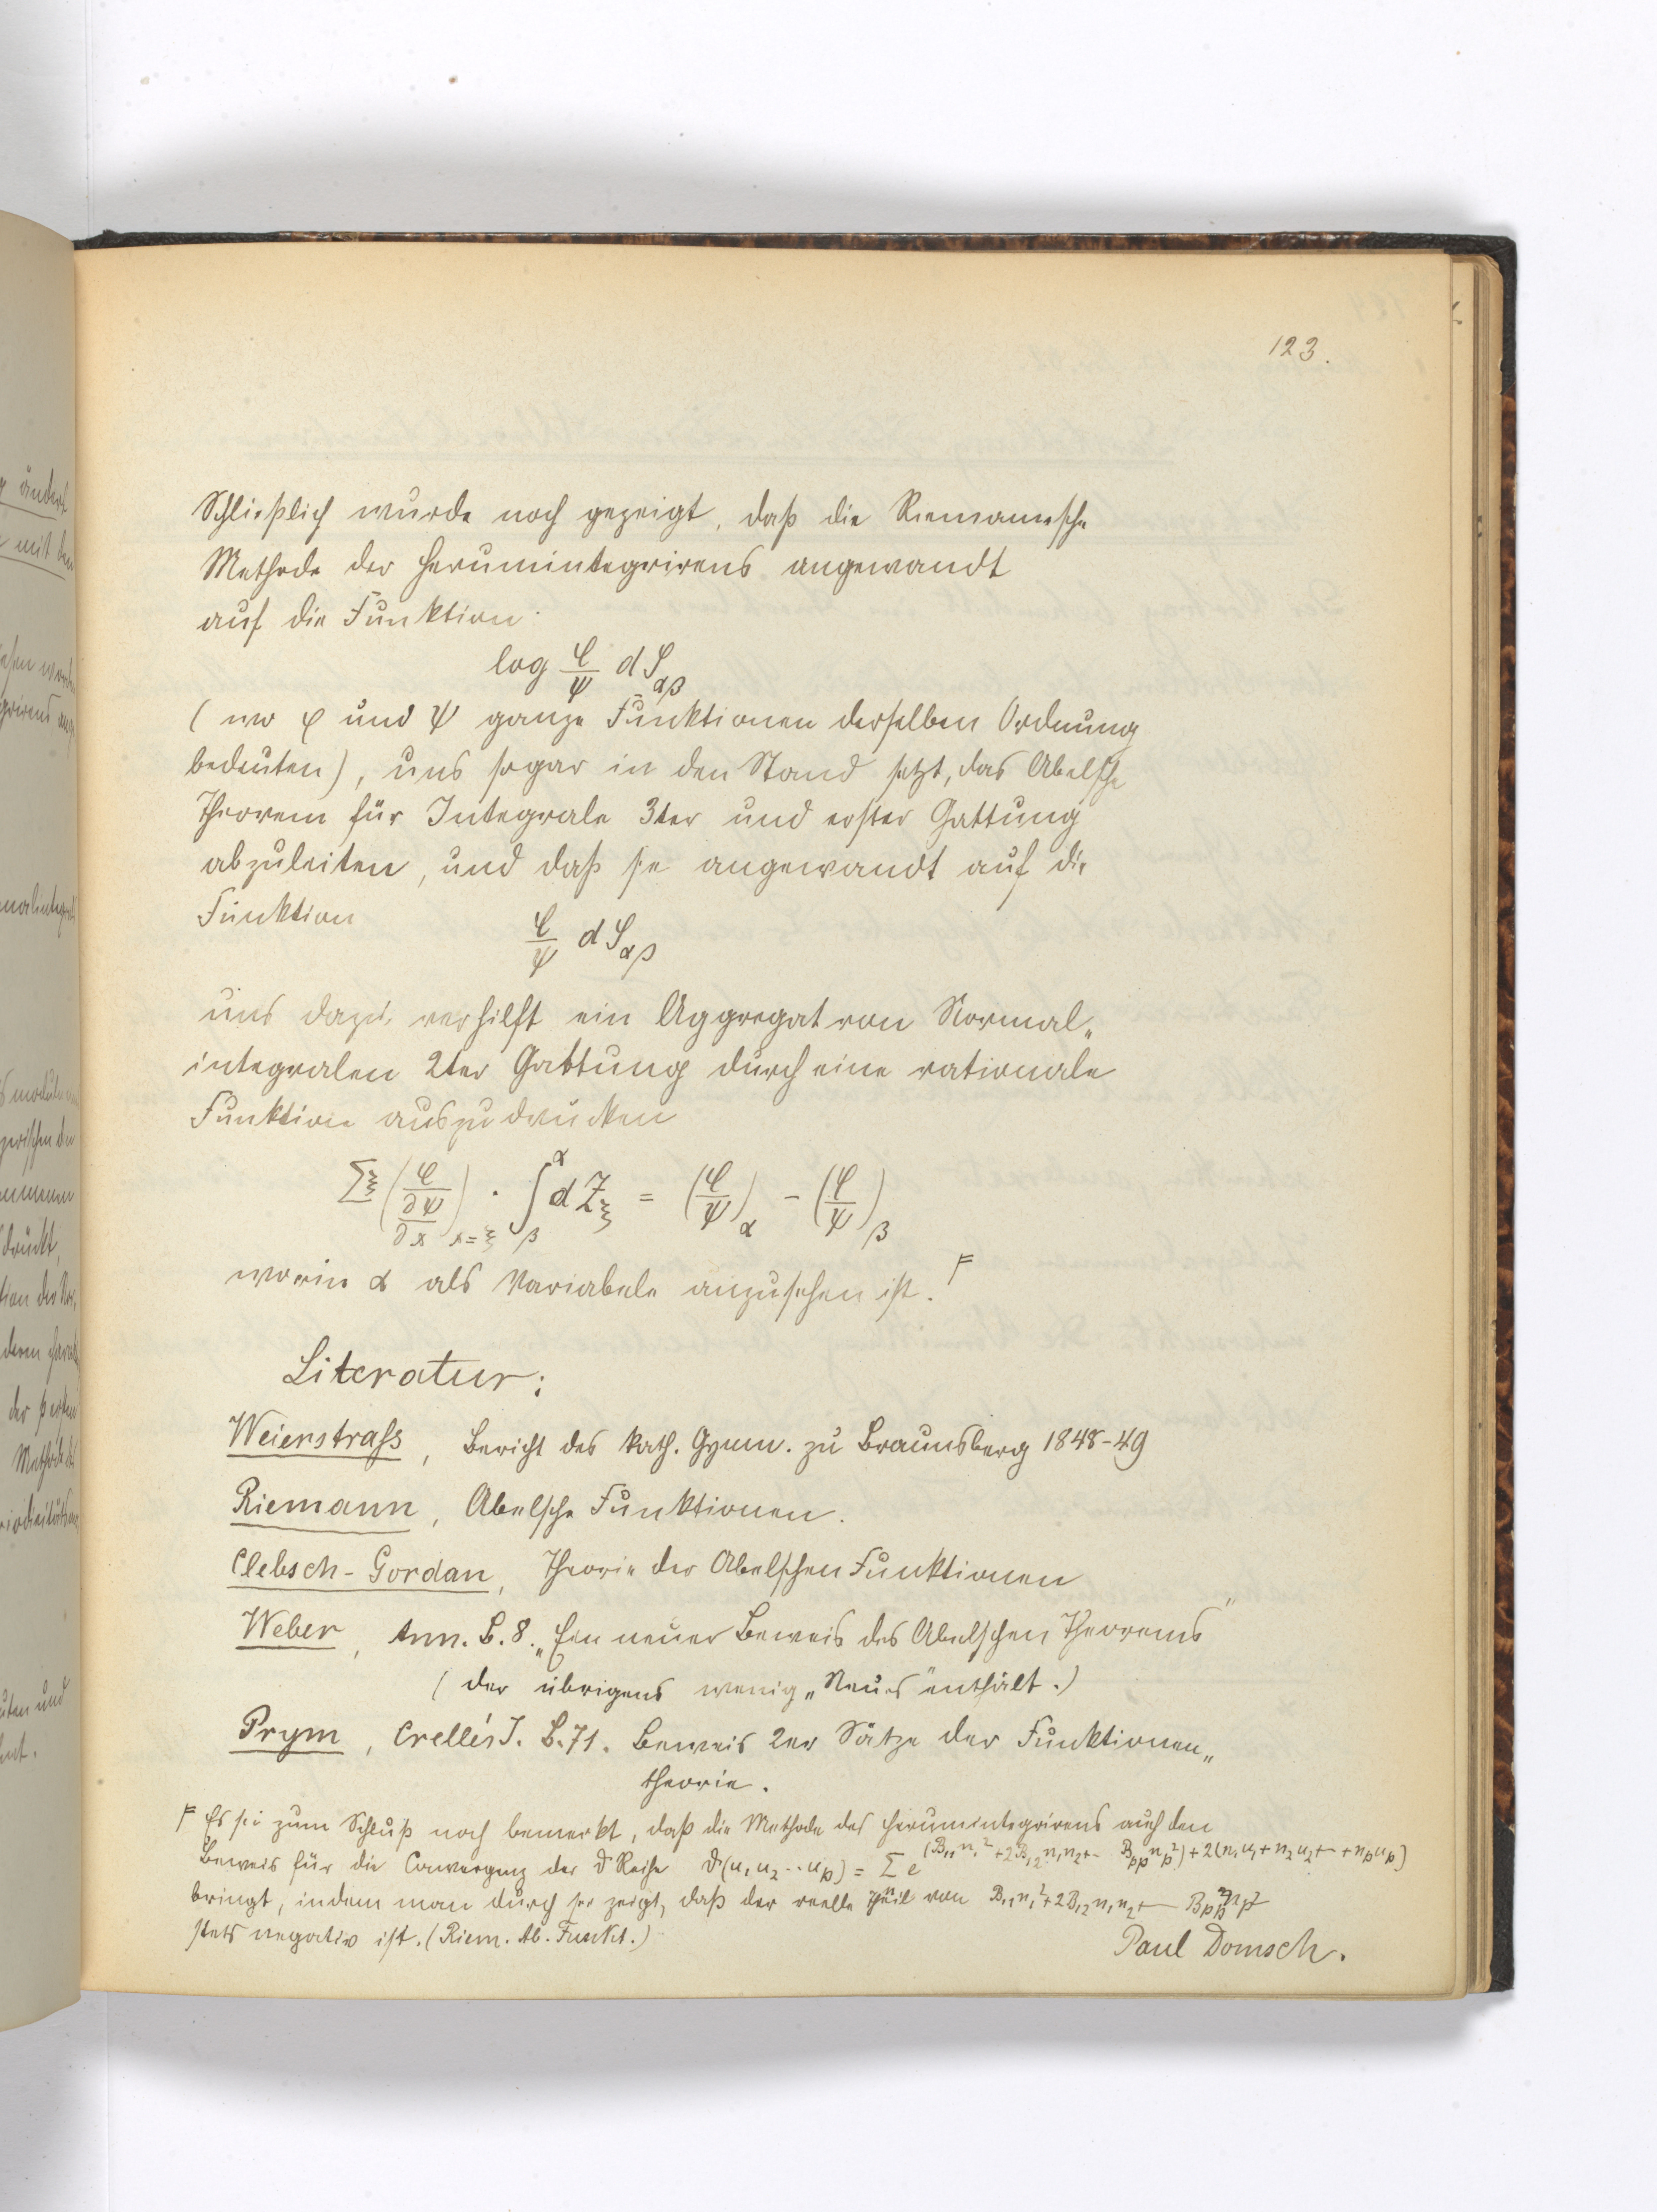 123.
Schließlich wurde noch gezeigt, daß die Riemannsche
Methode des Herumintegrirens angewandt
auf die Funktion:
log φ/ψ dS_αβ
(wo φ und ψ ganze Funktionen derselben Ordnung
bedeuten), uns sogar in den Stand setzt, das Abelsche
Theorem für Integrale 3ter und erster Gattung
abzuleiten, und daß sie angewandt auf die
Funktion
φ/ψ dS_αβ
uns dazu verhilft ein Aggregat von Normal„
integralen 2ter Gattung durch eine rationale
Funktion auszudrücken
Σ_ξ (φ/(∂ψ/∂x))_{x=ξ} · ∫_β^α dZ_ξ = (φ/ψ)_α - (φ/ψ)_β
worin α als Variabele anzusehen ist. F
Literatur:
Weierstraſs, Bericht des kath. Gymn. zu Braunsberg 1848-49
Riemann, Abelsche Funktionen.
Clebsch-Gordan, Theorie der Abelschen Funktionen
Weber, Ann. B. 8. „Ein neuer Beweis des Abelschen Theorems"
(der übrigens wenig „Neues" enthält.)
Prym, Crelle's J. B. 71. Beweis 2er Sätze der Funktionen„
theorie.
F Es sei zum Schluß noch bemerkt, daß die Methode des Herumintegrirens auch den
Beweis für die Convergenz der ϑ Reihe ϑ(u₁ u₂ ·· u_p) = Σ e^{(B₁₁n₁² + 2B₁₂n₁n₂ + - B_pp n_p²) + 2(n₁u₁ + n₂u₂ + - + n_p u_p)}
bringt, indem man durch sie zeigt, daß der reelle Theil von B₁₁n₁² + 2B₁₂n₁n₂ + - B_pp n_p²
stets negativ ist. (Riem. Ab. Funkt.)
Paul Domsch.